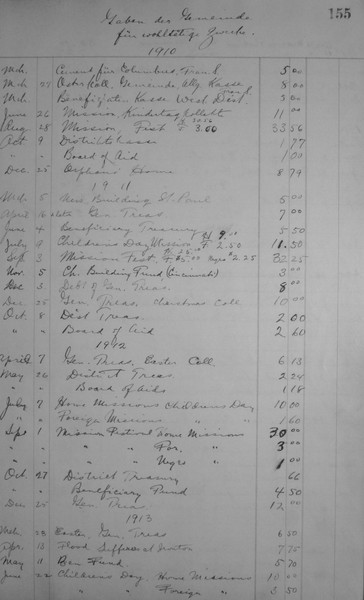 155
Gaben der Gemeinde
für wohltätige Zwecke.
1910
Mch. für Columbus, 5.00
Mch. 25 Osterkoll. Gemeinde Allg. Kasse 8.00
Mch. Kasse West Dist. 5.00
June 26 Mission Kindertag Kollekte 11.00
Aug 28 Mission Fest 3.00 33.56
Oct 9 District Kasse 1.77
" " Board of Aid 1.00
Dec 25 Orphans Home 8.79
1911
Mch. 5 New Building St. Paul 5.00
April 16 Gen. Treas 7.00
June 4 Beneficiary Treasury 5.50
July 9 Childrens Day Mission 2.50 11.50
Sept 3 Mission Fest 2.25 32.25
Nov. 5 Ch. Building Fund (Cincinnati) 3.00
Dec 3 Debt of Gen. Treas. 8.00
Dec. 25 Gen. Treas. Christmas Coll. 10.00
Oct. 8 Dist Treas. 2.00
" " Board of Aid 2.60
1912
April 7 Gen. Treas. Easter Coll. 6.13
May 26 District Treas. 2.24
" Board of Aid 1.18
July 7 Home Missions Childrens Day 10.00
" Foreign Missions " " 1.60
Sept 1 Mission Festival Home Missions 30.00
" " For. " 3.00
" " Negro " 1.00
Oct. 27 District Treasury .66
" " Beneficiary Fund 4.50
Dec 25 Gen. Treas. 12.00
1913
Mch. 23 Easter, Gen. Treas 6.50
Apr. 13 Flood Sufferers 7.75
May 11 Ben. Fund. 5.70
June 22 Childrens Day, Home Missions 10.00
" " Foreign " 3.50